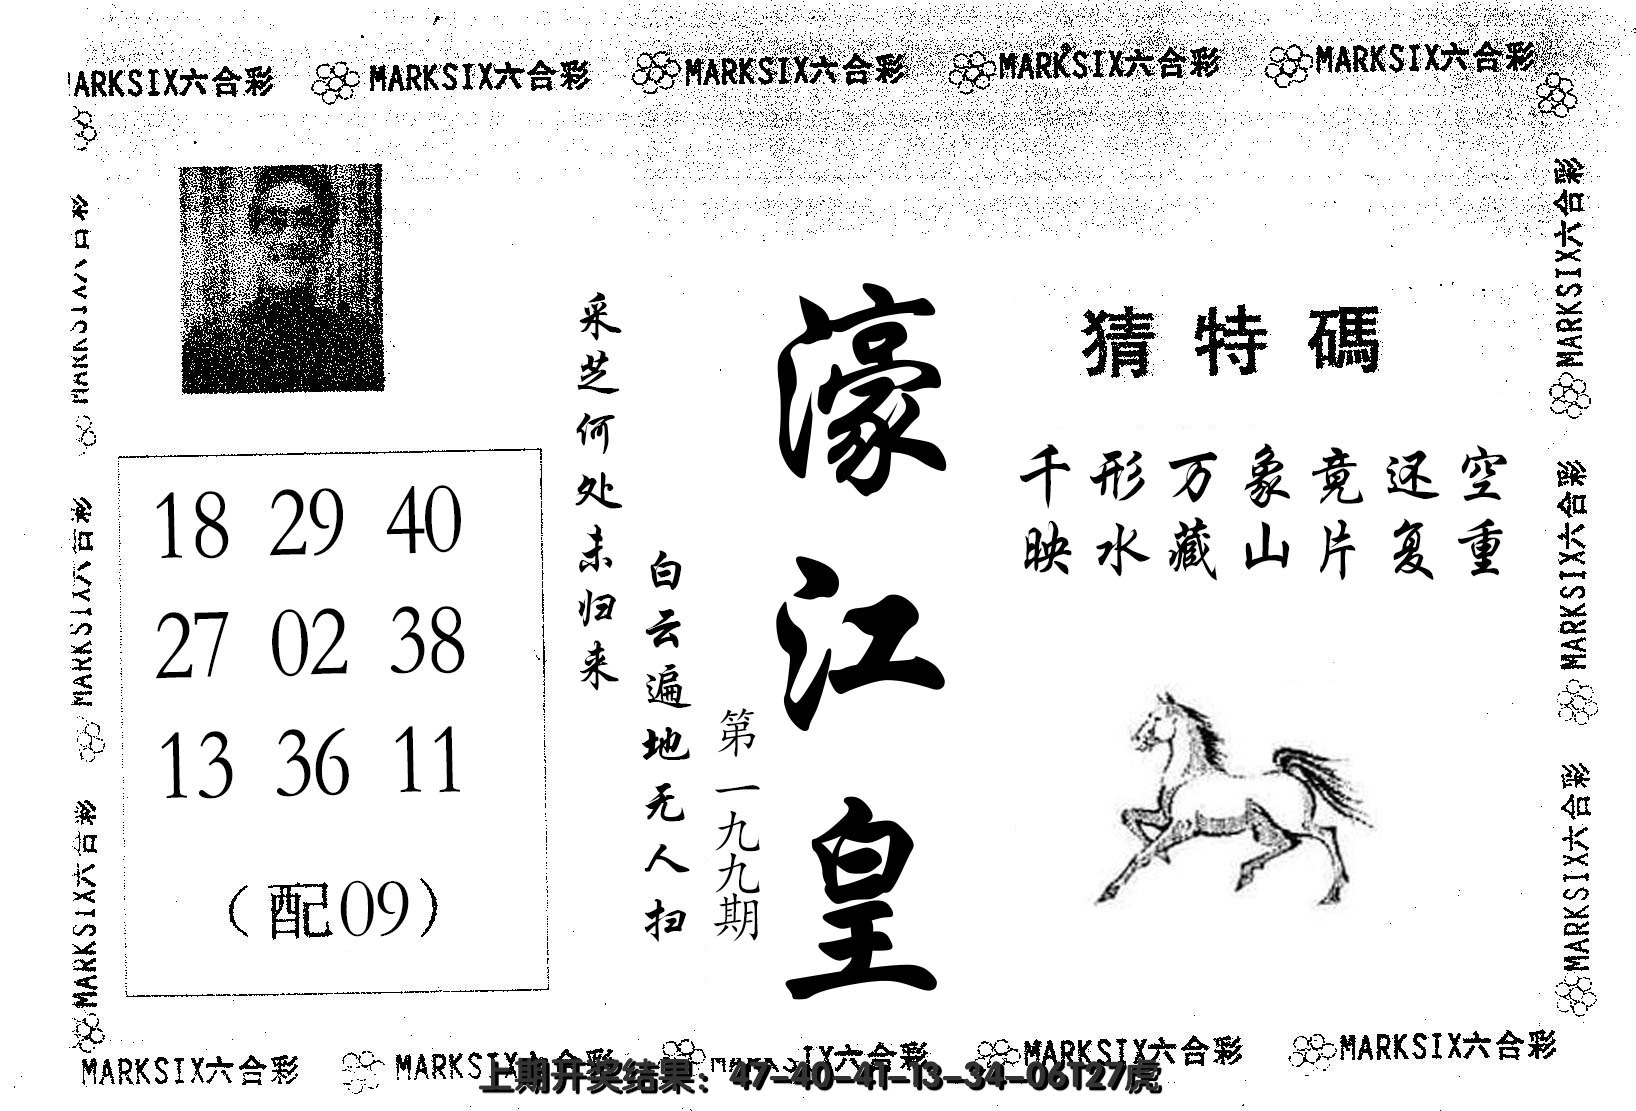 MARKSIX六合彩 MARKSIX六合彩 MARKSIX六合彩 MARKSIX六合彩
猜特碼
千形万象竟还空
映水藏山片复重
濠江皇
第一九九期
采芝何处未归来
白云遍地无人扫
18 29 40
27 02 38
13 36 11
（配09）
MARKSIX六合彩
MARKSIX六合彩
MARKSIX六合彩
MARKSIX六合彩
MARKSIX六合彩
MARKSIX六合彩 MARKSIX六合彩 MARKSIX六合彩 MARKSIX六合彩
上期开奖结果：47-40-41-13-34-06T27虎